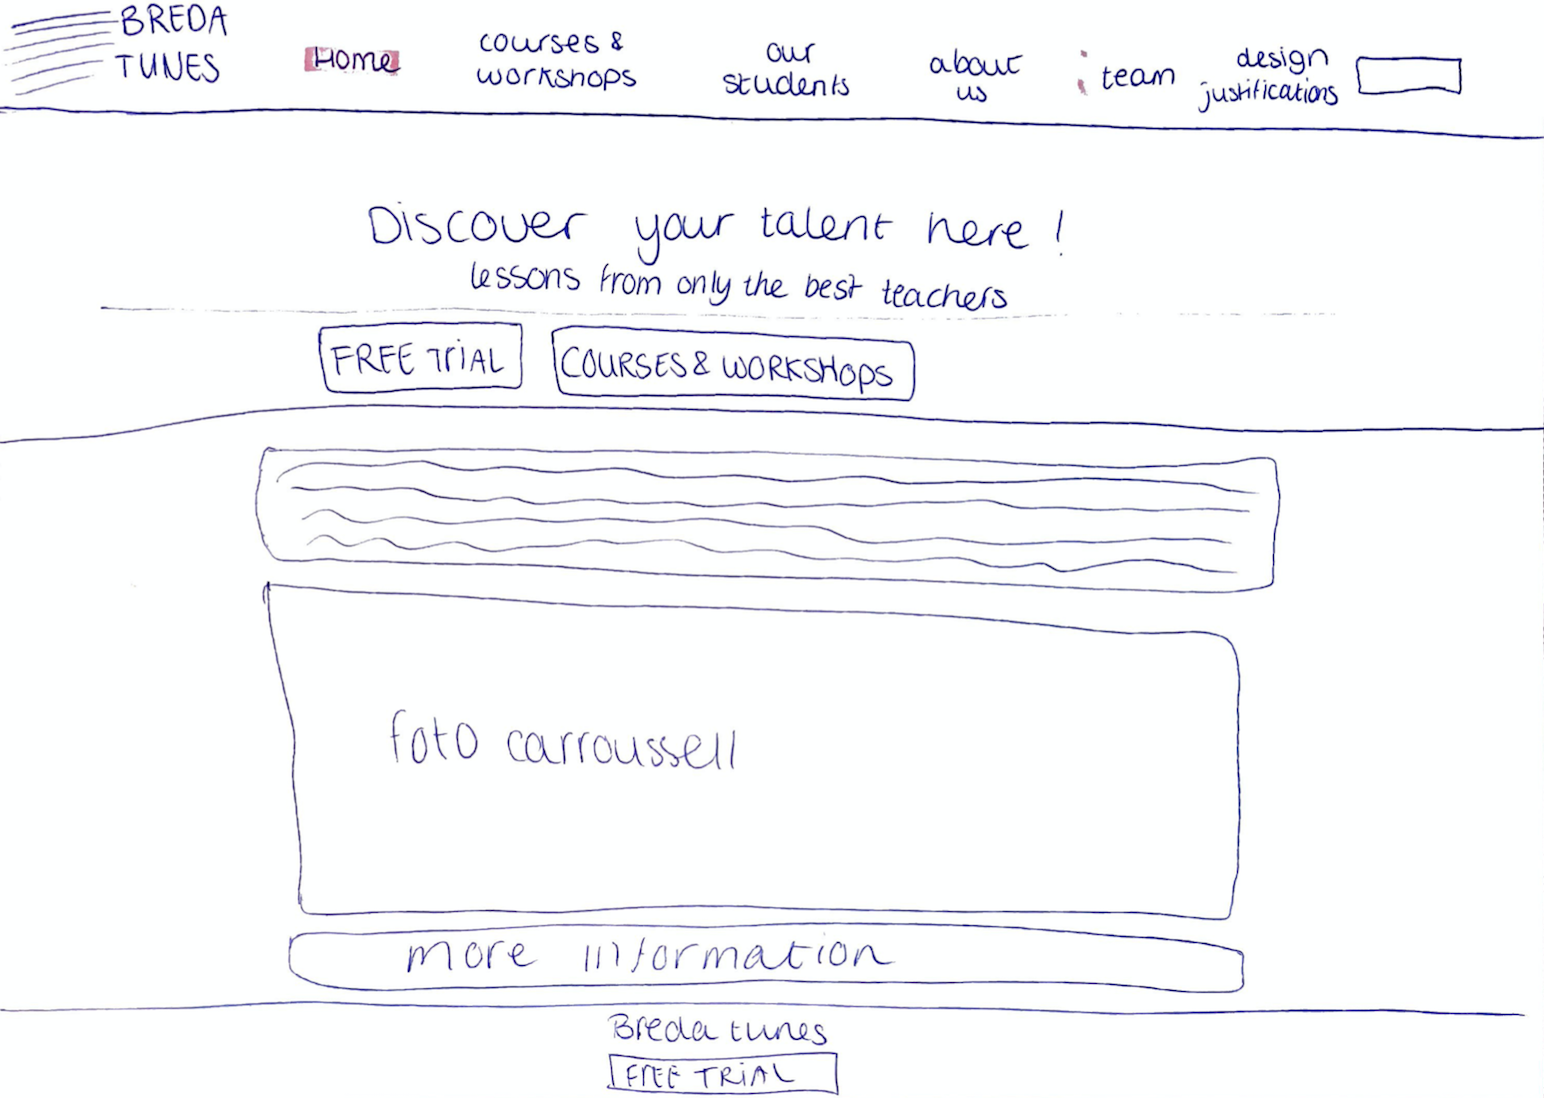 BREDA
TUNES
Home
courses &
workshops
our
students
about
us
team
design
justifications
Discover your talent here !
lessons from only the best teachers
FREE TRIAL
COURSES & WORKSHOPS
foto carroussell
more information
Breda tunes
FREE TRIAL